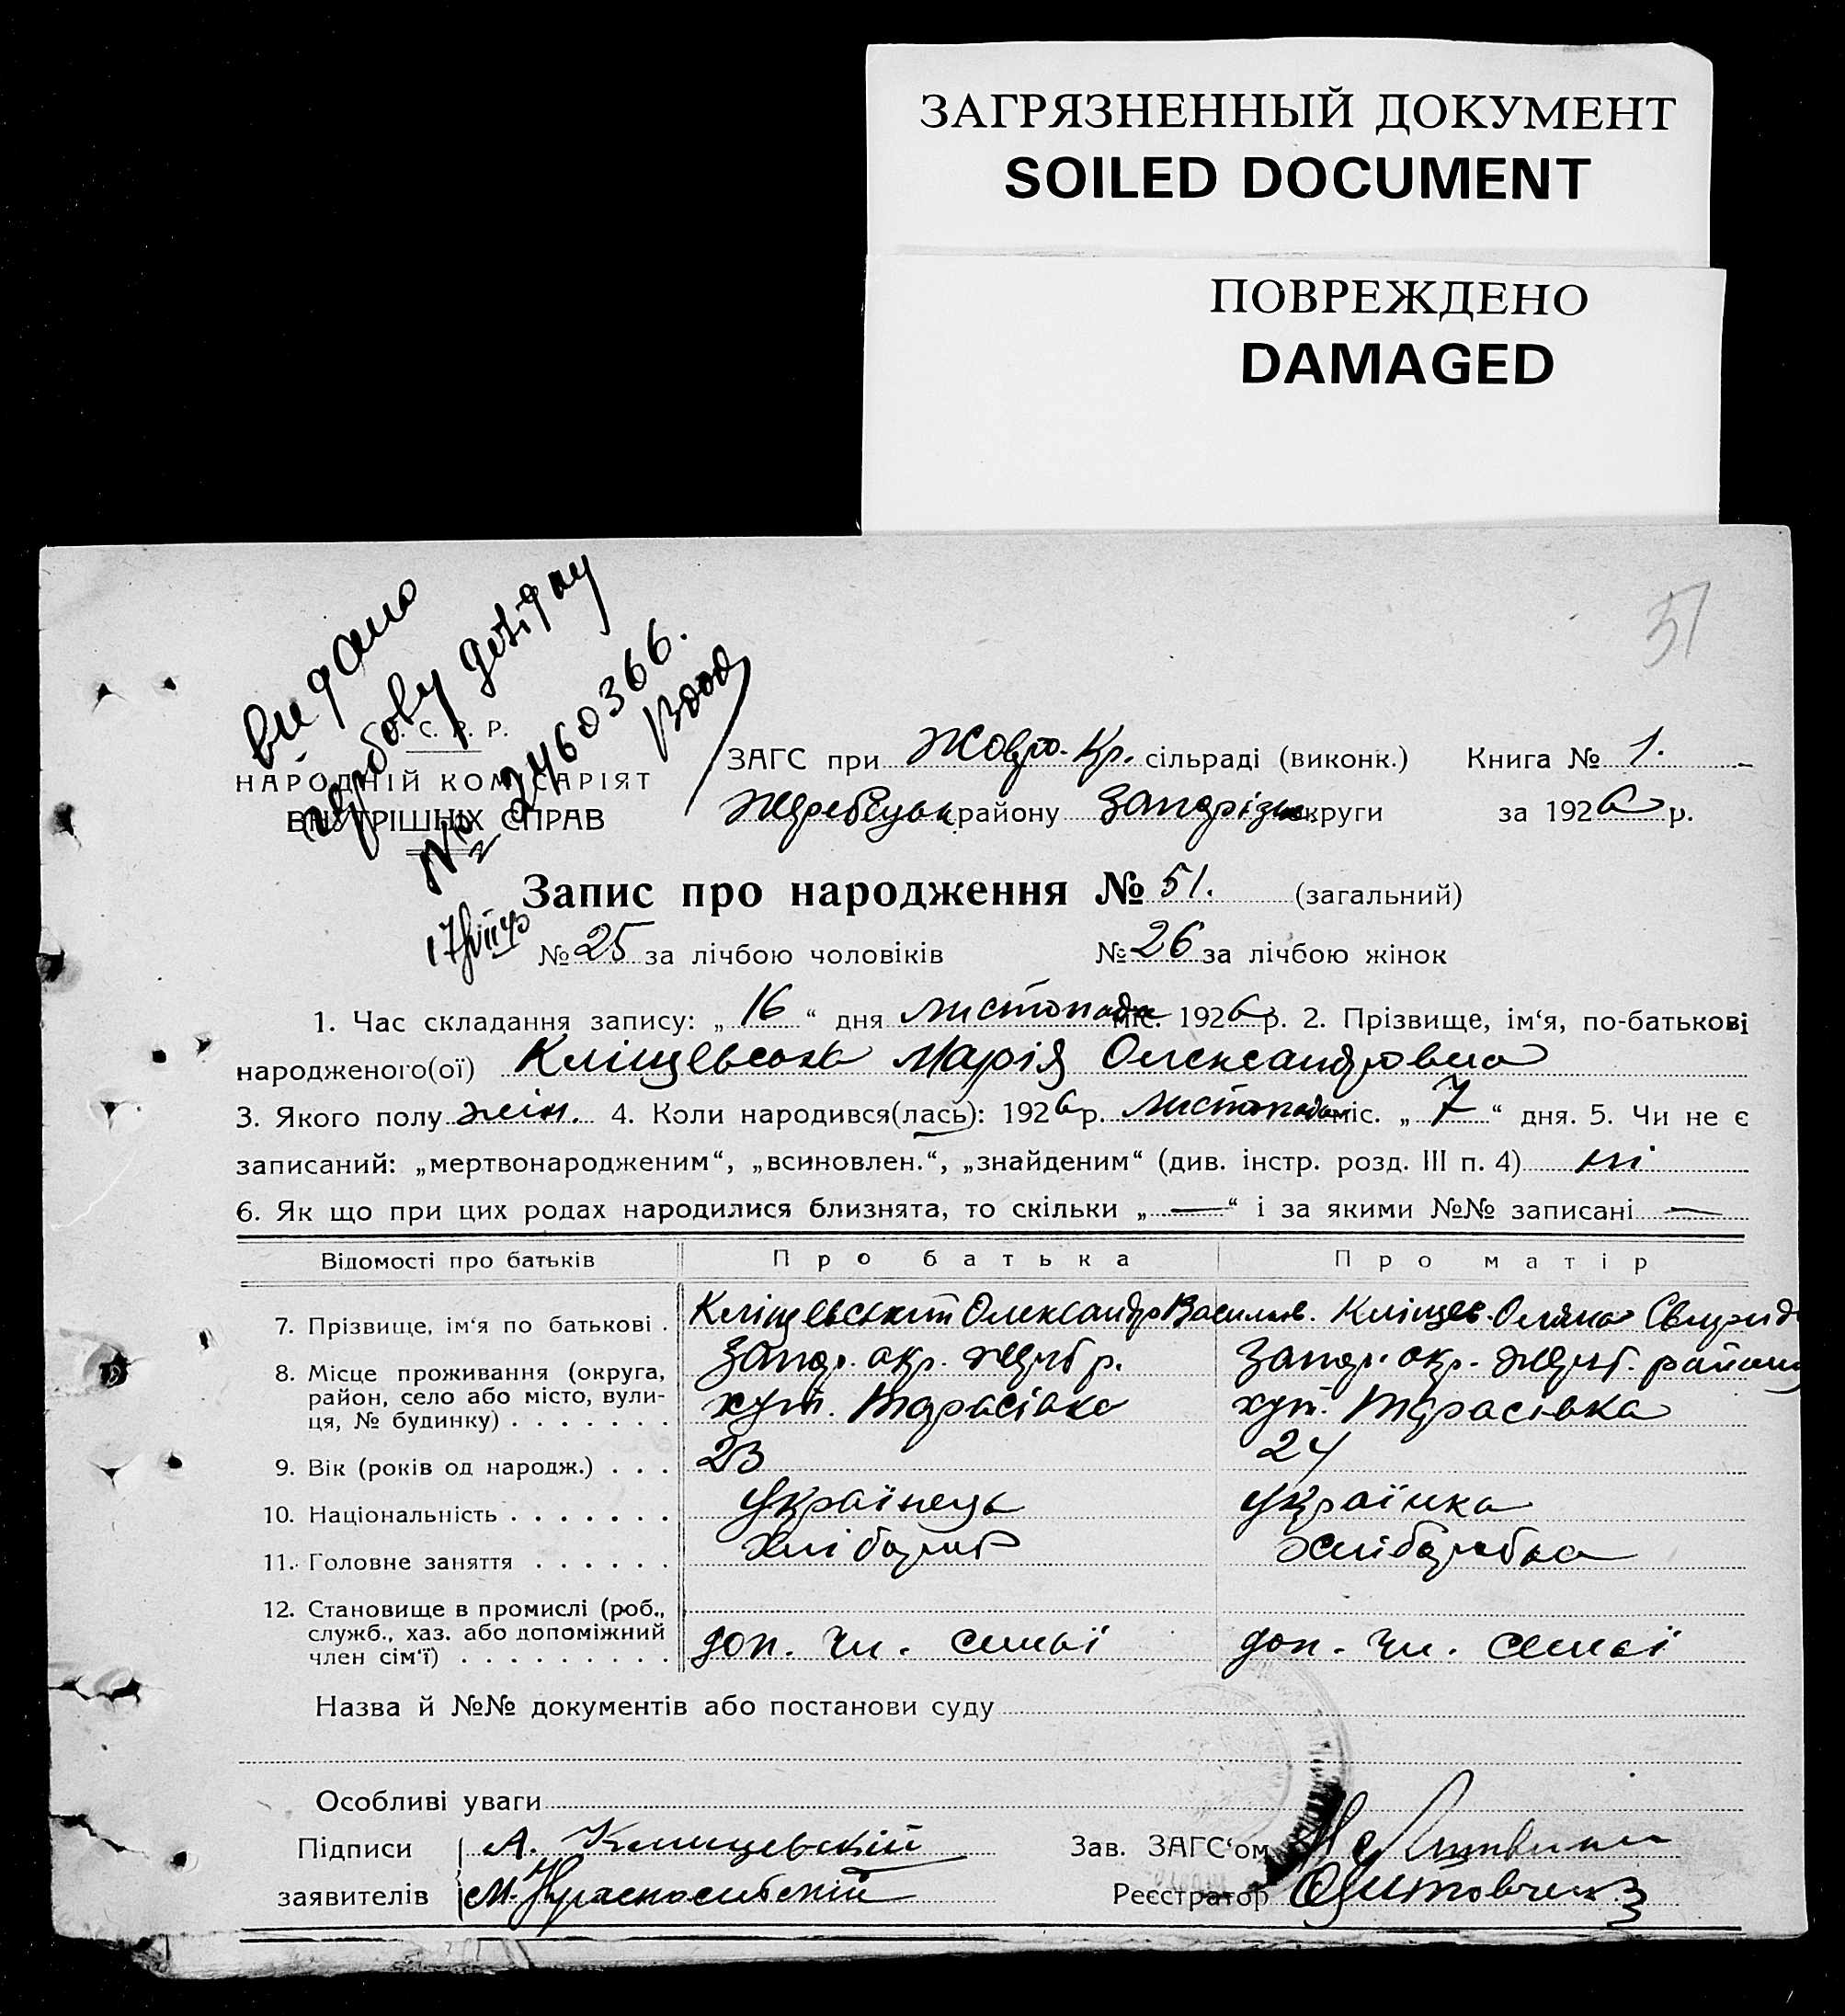 ЗАГРЯЗНЕННЫЙ ДОКУМЕНТ
SOILED DOCUMENT
ПОВРЕЖДЕНО
DAMAGED
51
видано
№ 2460366.
С. Р. Р.
НАРОДНІЙ КОМІСАРІЯТ
ВНУТРІШНІХ СПРАВ
ЗАГС при Жовто-Кр. сільраді (виконк.) Книга № 1.
району Запоріз округи за 1926 р.
Запис про народження № 51. (загальний)
№ 25 за лічбою чоловіків № 26 за лічбою жінок
1. Час складання запису: „ 16 “ дня листопада міс. 1926 р. 2. Прізвище, ім‘я, по-батькові
народженого(ої) Кліщевська Марія Олександровна
3. Якого полу жін. 4. Коли народився(лась): 1926 р. листопада міс. „ 7 “ дня. 5. Чи не є
записаний: „мертвонародженим“, „всиновлен.“, „знайденим“ (див. інстр. розд. III п. 4) ні
6. Як що при цих родах народилися близнята, то скільки „ — “ і за якими №№ записані —
Відомості про батьків Про батька Про матір
7. Прізвище, ім‘я по батькові . Кліщевський Олександр Василів. Кліщев. Оляна Свирид
8. Місце проживання (округа, Запор. окр. Жереб р. Запор. окр. Жереб. району
район, село або місто, вули- хут. Тарасівка хут. Тарасівка
ця, № будинку) . . . . . . .
9. Вік (років од народж.) . . . 23 24
10. Національність . . . . . . . українець українка
11. Головне заняття . . . . . . хлібороб хліборобка
12. Становище в промислі (роб.,
служб., хаз. або допоміжний доп. чл. семьї доп. чл. семьї
член сім‘ї) . . . . . . . . .
Назва й №№ документів або постанови суду
Особливі уваги
Підписи А. Клищевский Зав. ЗАГС‘ом
заявителів М. Реєстратор